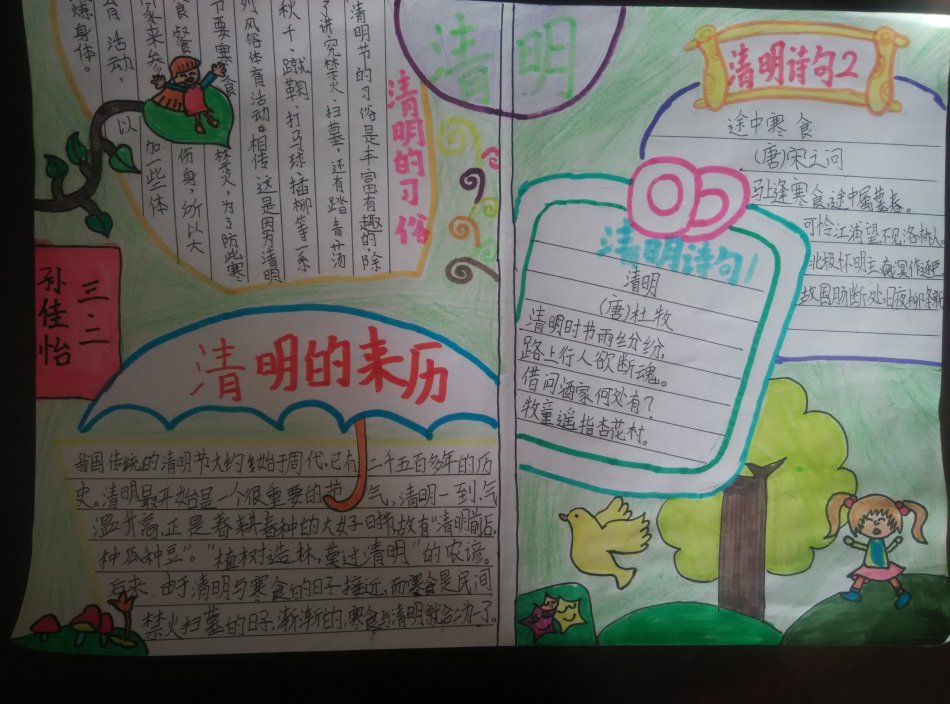 清明
清明的习俗
清明节的习俗是丰富有趣的，除
了讲究禁火、扫墓，还有踏青、荡
秋千、蹴鞠、打马球、插柳等一系
列风俗体育活动。相传这是因为清明
节要寒食禁火，为了防此寒
食餐伤身，所以大
家来参加一些体
育活动，以
炼身体。
三.二
孙佳怡
清明的来历
我国传统的清明节大约始于周代，已有二千五百多年的历
史。清明最开始是一个很重要的节气，清明一到，气
温升高，正是春耕春种的大好时节，故有“清明前后，
种瓜种豆”。“植树造林，莫过清明”的农谚。
后来，由于清明与寒食的日子接近，而寒食是民间
禁火扫墓的日子，渐渐的，寒食与清明就合二为一了
清明诗句1
清明
(唐)杜牧
清明时节雨纷纷，
路上行人欲断魂。
借问酒家何处有？
牧童遥指杏花村。
清明诗句2
途中寒食
(唐)宋之问
马上逢寒食，途中属暮春。
可怜江浦望，不见洛桥人
北极怀明主，南溟作逐臣
故园肠断处，日夜柳条新